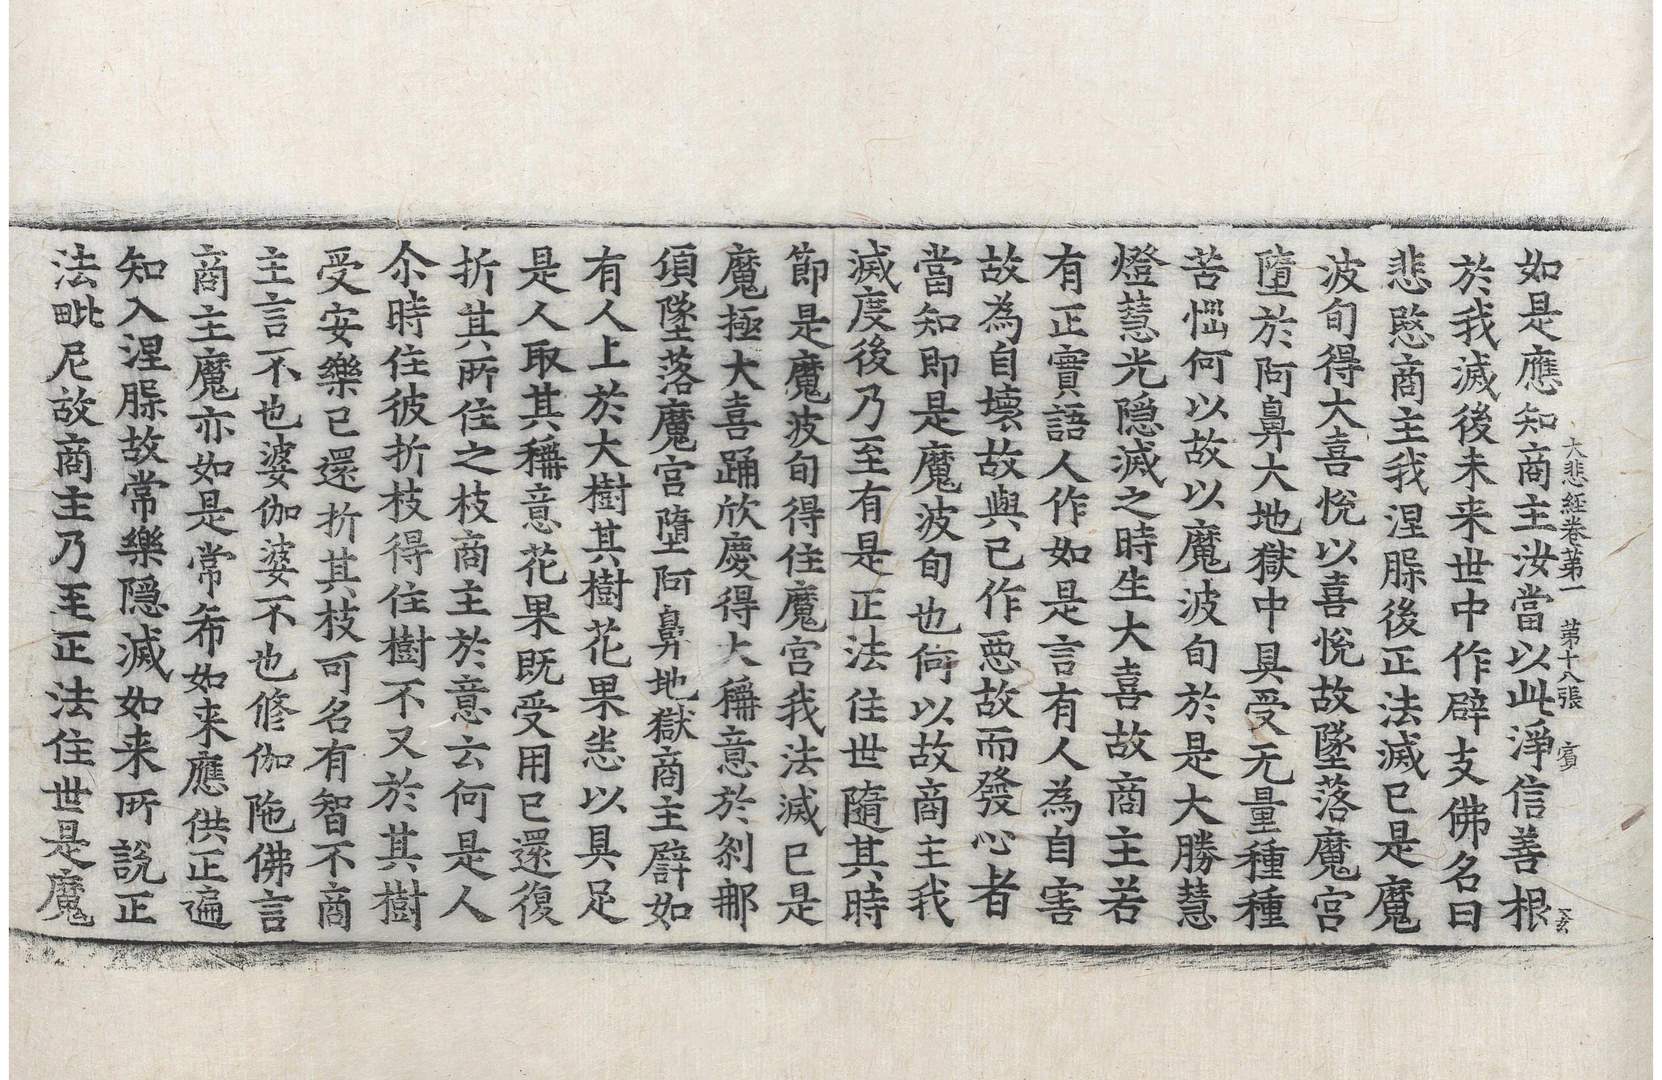 大悲經卷第一　第十八張　賓
如是應知商主汝當以此淨信善根
於我滅後未来世中作辟支佛名曰
悲愍商主我涅槃後正法滅已是魔
波旬得大喜悅以喜悅故墜落魔宫
墮於阿鼻大地獄中具受无量種種
苦惱何以故以魔波旬於是大勝慧
燈慧光隠滅之時生大喜故商主若
有正實語人作如是言有人為自害
故為自壞故與已作惡故而發心者
當知即是魔波旬也何以故商主我
滅度後乃至有是正法住世隨其時
節是魔波旬得住魔宫我法滅已是
魔極大喜踊欣慶得大稱意於剎那
頃墜落魔宫墮阿鼻地獄商主譬如
有人上於大樹其樹花果悉以具足
是人取其稱意花果既受用已還復
折其所住之枝商主於意云何是人
尒時住彼折枝得住樹不又於其樹
受安樂已還折其枝可名有智不商
主言不也婆伽婆不也修伽陁佛言
商主魔亦如是常希如来應供正遍
知入涅槃故常樂隠滅如来所說正
法毗尼故商主乃至正法住世是魔